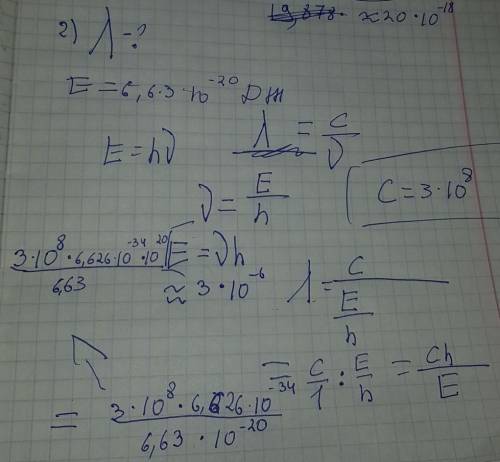 ~~19,878.~~ ≈20·10⁻¹⁸
2) λ-?
E=6,63·10⁻²⁰ Дж
E=hν λ = c/ν
ν = E/h
C=3·10⁸
E=νh
3·10⁸·6,626·10⁻³⁴·10²⁰ / 6,63 ≈ 3·10⁻⁶
λ = c / (E/h)
= c/1 : E/h = ch/E
= 3·10⁸·6,626·10⁻³⁴ / 6,63·10⁻²⁰